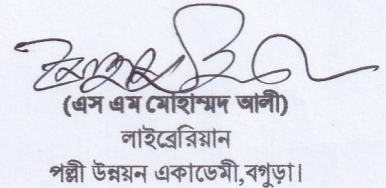 (এস এম মোহাম্মদ আলী)
লাইব্রেরিয়ান
পল্লী উন্নয়ন একাডেমী,বগুড়া।